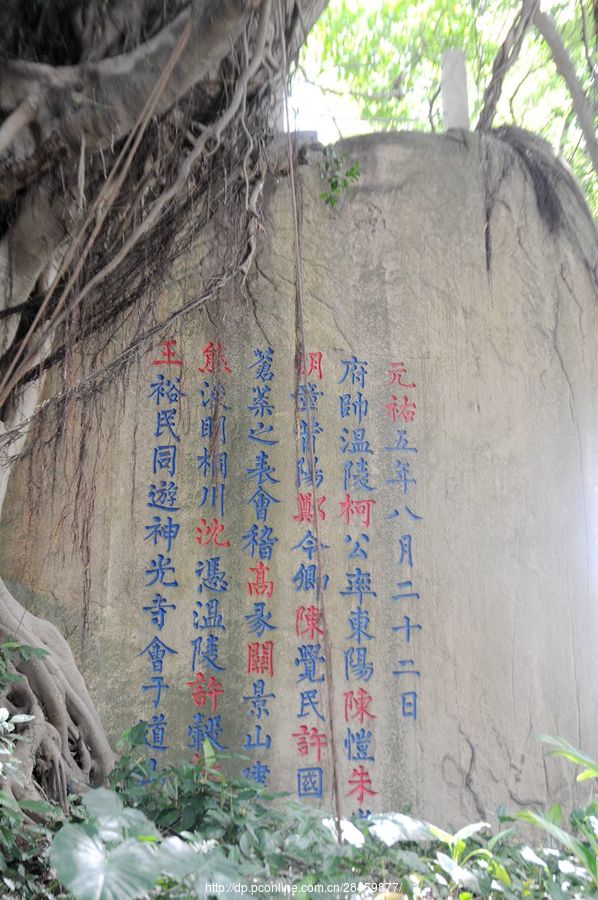 元祐五年八月二十二日
府帥溫陵柯公率東陽陳愷朱
昔陽鄭令卿陳覺民許國
蒼菜之表會稽高彖關景山
熊浚明桐川沈憑溫陵許轂
王裕民同遊神光寺會于道山
http://dp.pconline.com.cn/28059877/